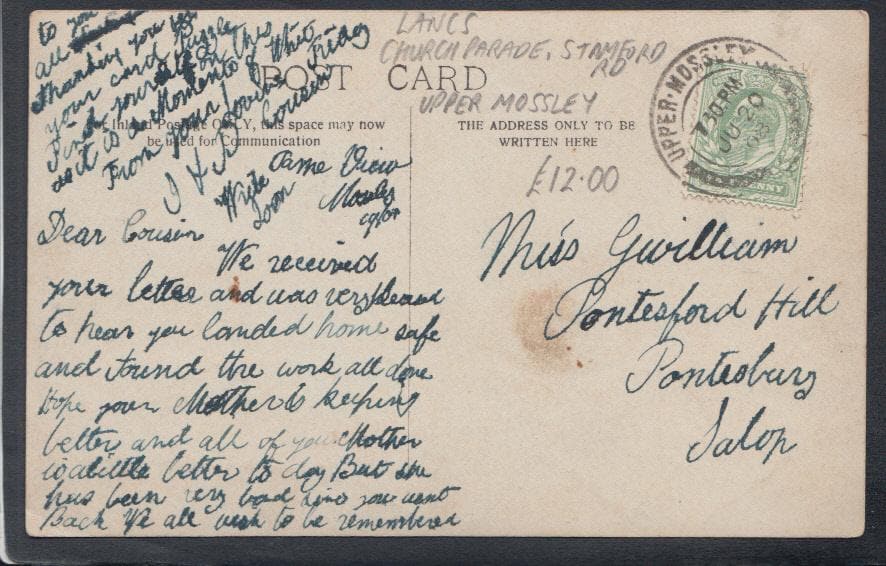 LANCS
CHURCH PARADE, STAMFORD RD
UPPER MOSSLEY
£12.00
POST CARD
Inland Postage ONLY, this space may now
be used for Communication
THE ADDRESS ONLY TO BE
WRITTEN HERE
UPPER-MOSSLEY
7 30 PM
JU 20
08
PENNY
Tame View
Mossley
Dear Cousin
We received
your letter and was very pleased
to hear you landed home safe
and found the work all done
Hope your Mother is keeping
better and all of you Mother
is a little better to day But she
has been very bad since you went
Back We all wish to be remembered
to you
all
thanking you for
your card Puzzle
Find yourself on this
as it is a Momento of Whit Friday
From your loving Cousin
J
Write
soon
Miss Gwilliam
Pontesford Hill
Pontesbury
Salop